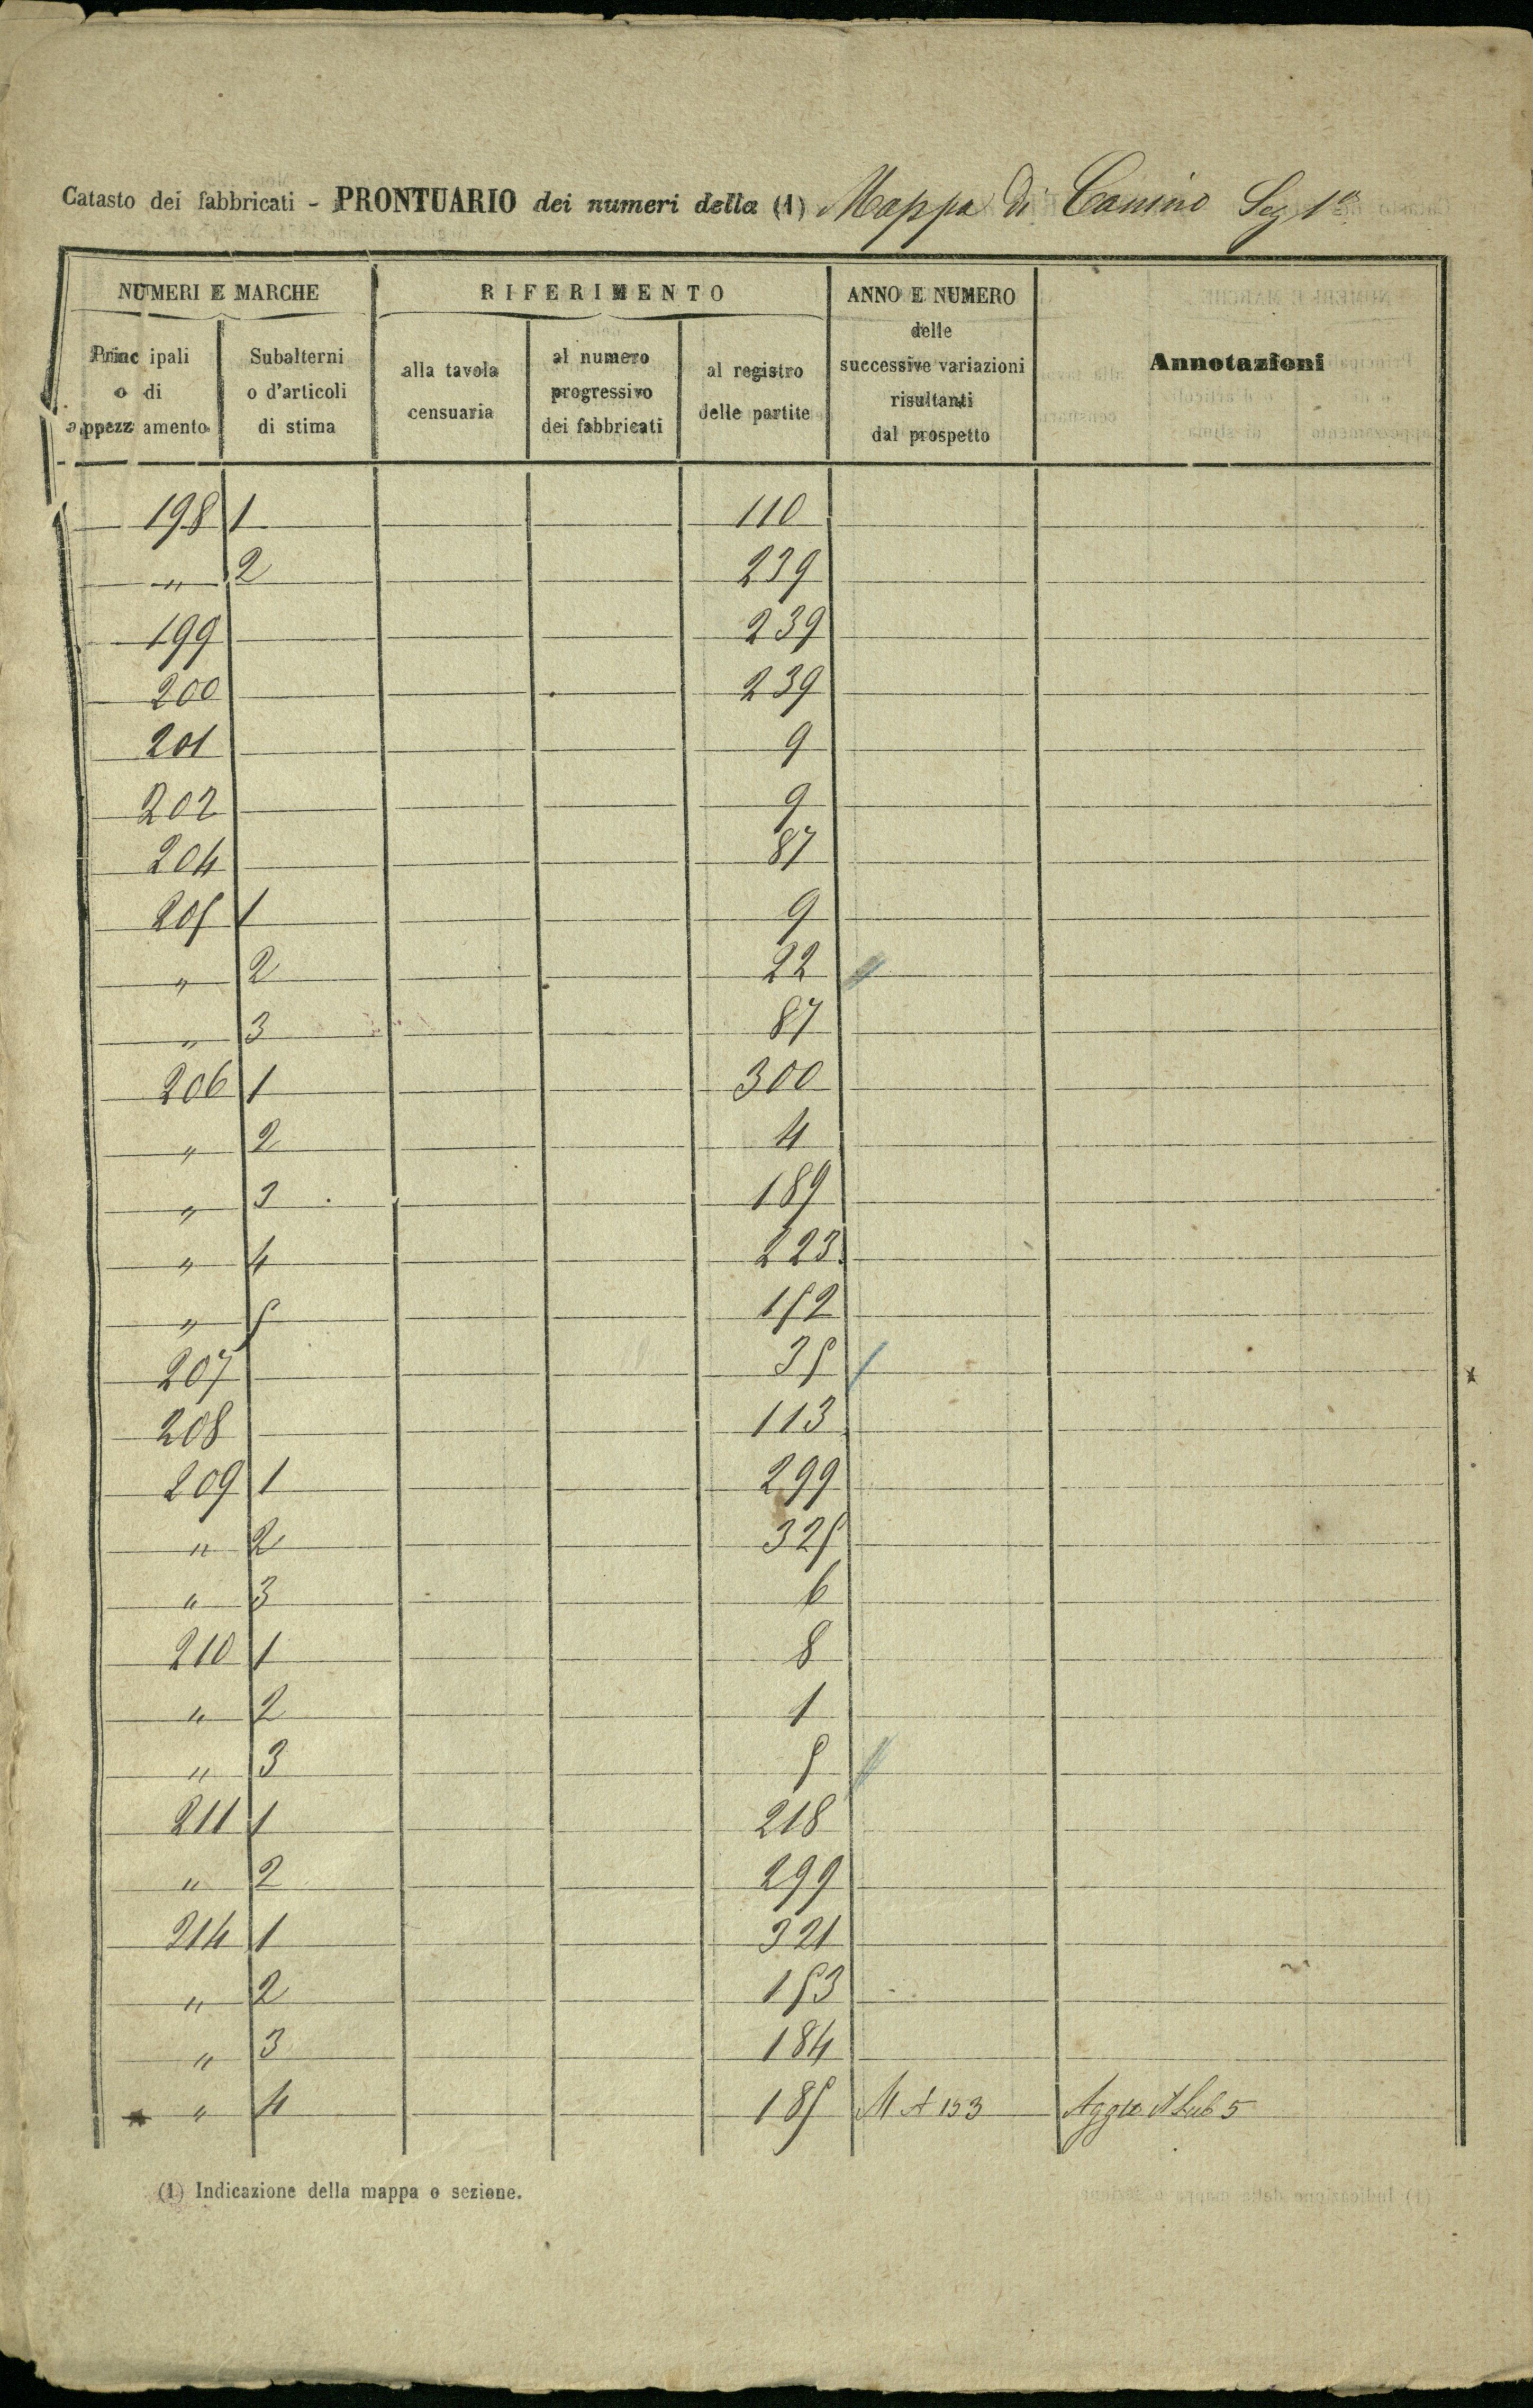 Catasto dei fabbricati - PRONTUARIO dei numeri della (1) Mappa di Canino Sez 1ª
NUMERI E MARCHE RIFERIMENTO ANNO E NUMERO delle successive variazioni risultanti dal prospetto Annotazioni
Principali o di appezzamento Subalterni o d'articoli di stima alla tavola censuaria al numero progressivo dei fabbricati al registro delle partite
198 1 110
" 2 239
199 239
200 239
201 9
202 9
204 87
205 1 9
" 2 22
" 3 87
206 1 300
" 2 4
" 3 189
" 4 223
" 5 152
207 35
208 113
209 1 299
" 2 325
" 3 6
210 1 8
" 2 1
" 3 5
211 1 218
" 2 299
214 1 321
" 2 153
" 3 184
" 4 185 M A 153 Sub 5
(1) Indicazione della mappa o sezione.